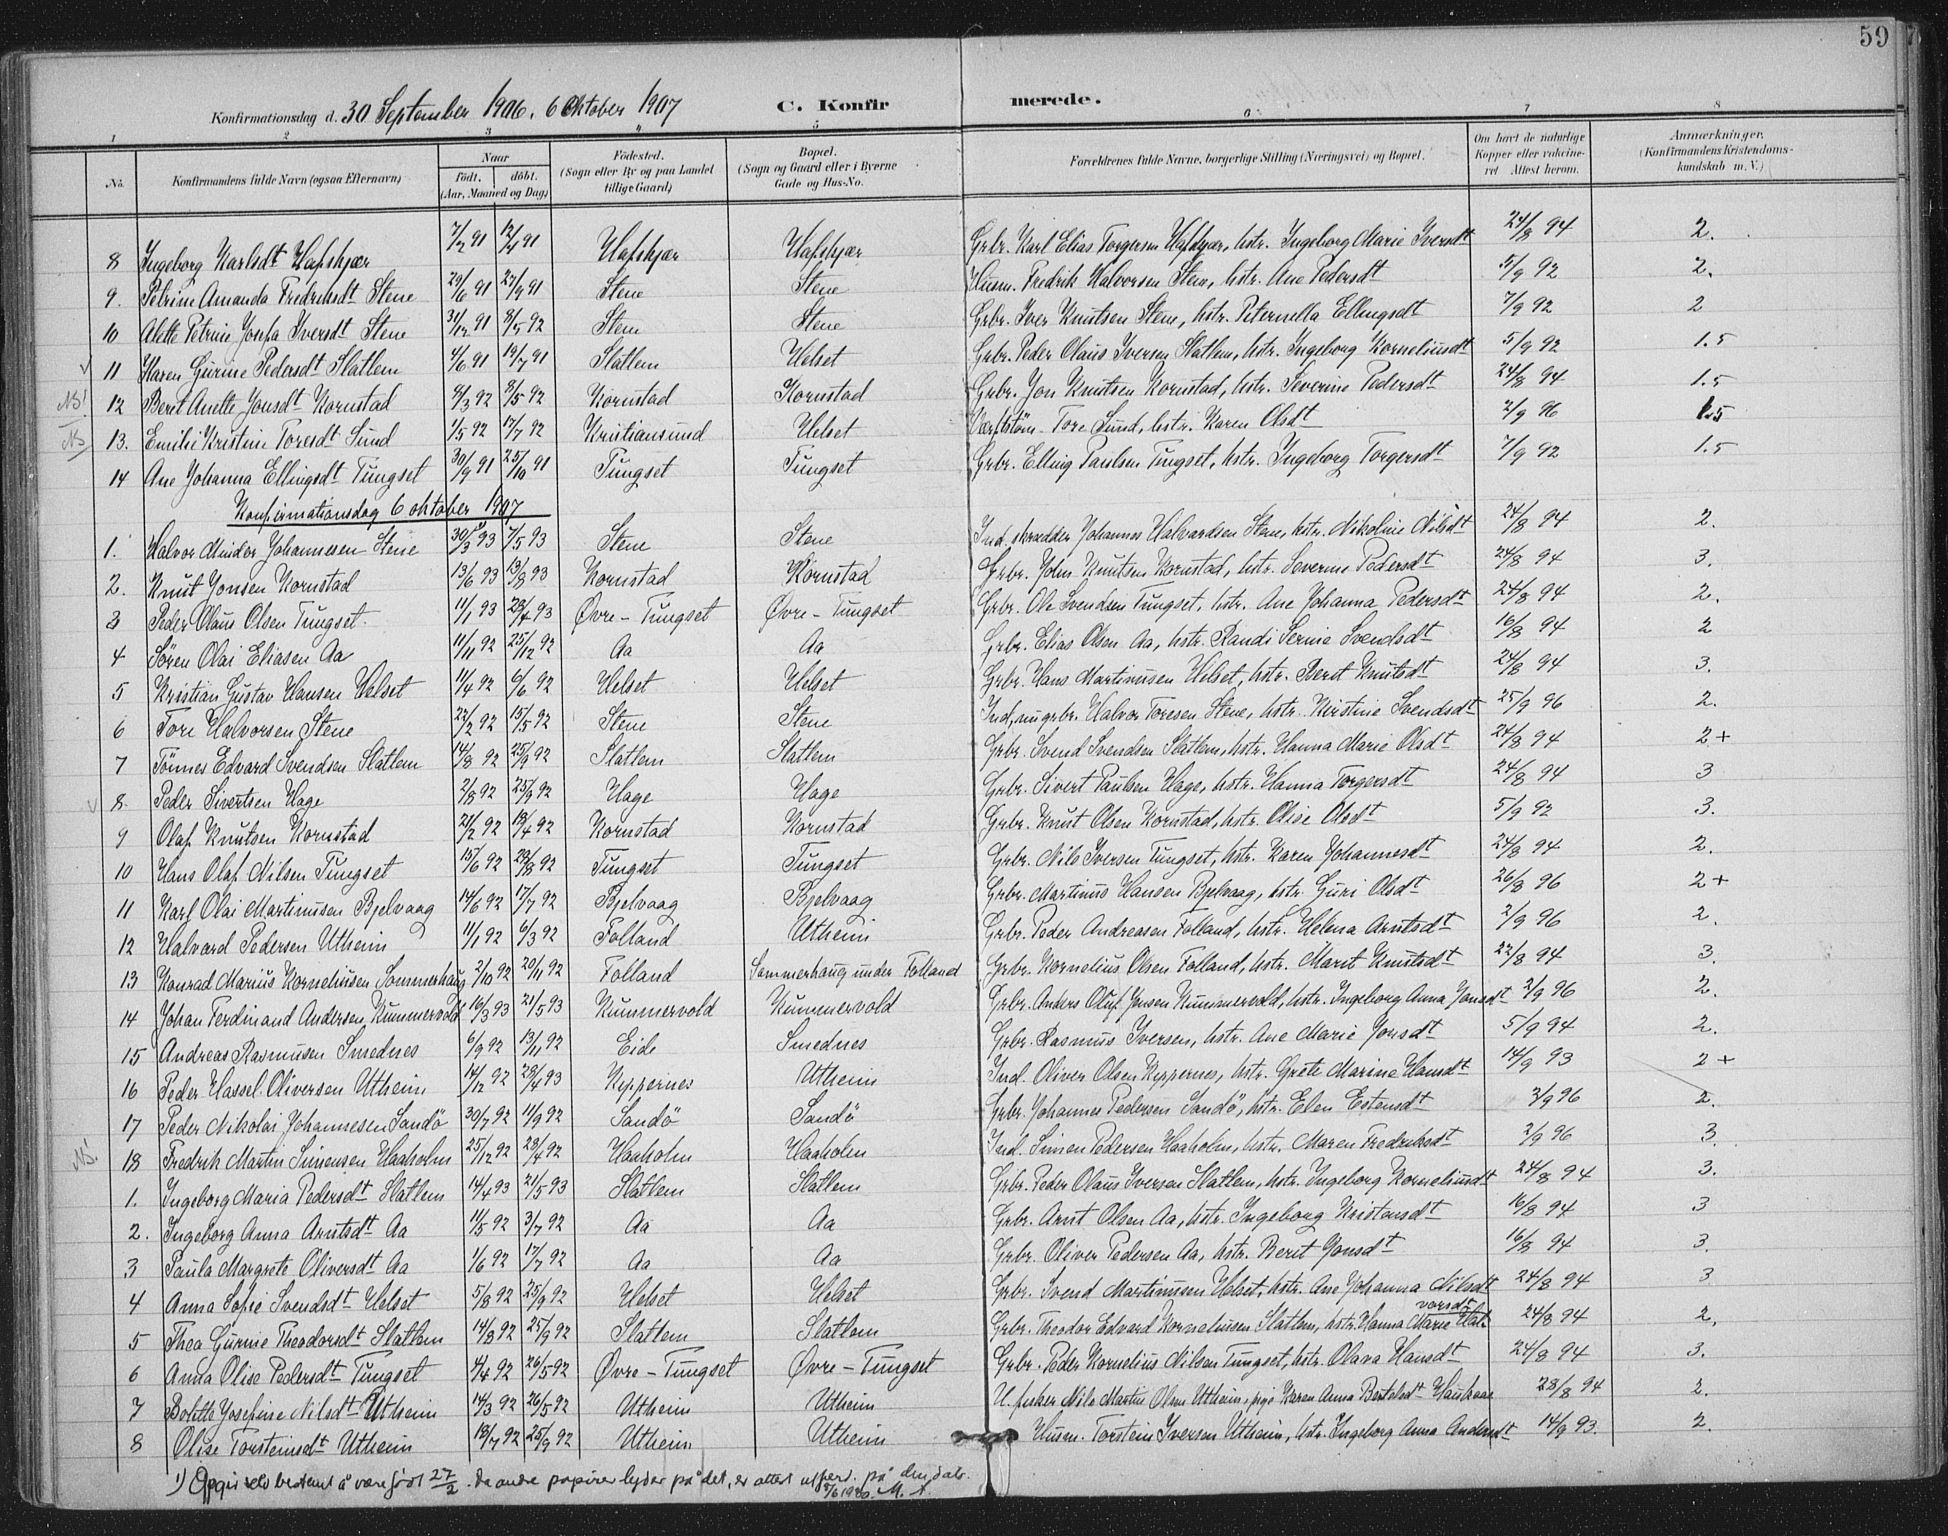 59
Konfirmationsdag d. 30 September 1906. 6 Oktober 1907 C. Konfirmerede.
1 2 3 4 5 6 7 8
No. Konfirmandens fulde Navn (ogsaa Efternavn) Naar födt. döbt. (Aar, Maaned og Dag) Födested. (Sogn eller By og paa Landet tillige Gaard) Bopæl. (Sogn og Gaard eller i Byerne Gade og Hus-No. Forældrenes fulde Navne, borgerlige Stilling (Næringsvei) og Bopæl. Om havt de naturlige Kopper eller vakcineret. Attest herom. Anmærkninger. (Konfirmandens Kristendomskundskab m. V.)
8 Ingeborg Karlsdt Hafskjær 7/2 91 12/4 91 Hafskjær Hafskjær Grbr. Karl Elias Torgersen Hafskjær, hstr. Ingeborg Marie Iversdt 24/8 94 2.
9. Petrine Amanda Fredriksdt Stene 29/6 91 27/9 91 Stene Stene Husm. Fredrik Halvorsen Stene, hstr. Ane Pedersdt 5/9 92 2.
10 Alette Petrine Josefa Iversdt Stene 31/12 91 8/5 92 Stene Stene Grbr. Iver Knutsen Stene, hstr. Peternella Ellingsdt 7/9 92 2
11 Karen Gurine Pedersdt Slatlem 4/6 91 19/7 91 Slatlem Helset Grbr. Peder Olaus Iversen Slatlem, hstr. Ingeborg Korneliusdt 5/9 92 1.5
NB! 12 Berit Anette Jonsdt Kornstad 8/3 92 8/5 92 Kornstad Kornstad Grbr. Jon Knutsen Kornstad, hstr. Severine Pedersdt 24/8 94 1.5
NB 13. Emilie Kristine Toresdt Sund 1/5 92 17/7 92 Kristiansund Helset Tore Sund, hstr. Karen Olsdt 2/9 96 1.5
14 Ane Johanna Ellingsdt Tungset 30/9 91 25/10 91 Tungset Tungset Grbr. Elling Paulsen Tungset, hstr. Ingeborg Torgersdt 7/9 92 1.5
Konfirmationsdag 6 oktober 1907
1. Halvor Mindor Johannesen Stene 30/3 93 7/5 93 Stene Stene Ind. skrædder Johannes Halvardsen Stene, hstr. Nikoline Nilsdt 24/8 94 2.
2. Knut Jonsen Kornstad 13/6 93 13/8 93 Kornstad Kornstad Grbr. John Knutsen Kornstad, hstr. Severine Pedersdt 24/8 94 3.
3 Peder Olaus Olsen Tungset. 11/1 93 23/4 93 Øvre-Tungset Øvre-Tungset Grbr. Ole Svendsen Tungset, hstr. Ane Johanna Pedersdt 24/8 94 2.
4 Sören Olai Eliasen Aa 11/11 92 25/12 92 Aa Aa Grbr. Elias Olsen Aa, hstr. Randi Serine Svendsdt 16/8 94 2
5 Kristian Gustav Hansen Helset 11/4 92 6/6 92 Helset Helset Grbr. Hans Martinusen Helset, hstr. Berit Knutsdt 24/8 94 3.
6 Tore Halvorsen Stene 22/2 92 15/5 92 Stene Stene Ind, nu grbr. Halvor Toresen Stene, hstr. Kristine Svendsdt 25/9 96 2.
7 Tönnes Edvard Svendsen Slatlem 14/8 92 25/9 92 Slatlem Slatlem Grbr. Svend Svendsen Slatlem, hstr. Hanna Marie Olsdt 24/8 94 2+
8. Peder Sivertsen Hage 2/8 92 25/9 92 Hage Hage Grbr. Sivert Paulsen Hage, hstr. Hanna Torgersdt 24/8 94 3
9 Olaf Knutsen Kornstad 21/2 92 18/4 92 Kornstad Kornstad Grbr. Knut Olsen Kornstad, hstr. Olise Olsdt 5/9 92 3.
10 Hans Olaf Nilsen Tungset 15/6 92 28/8 92 Tungset Tungset Grbr. Nils Iversen Tungset, hstr. Karen Johannesdt 24/8 94 2.
11 Karl Olai Martinusen Bjelvaag 14/6 92 17/7 92 Bjelvaag Bjelvaag Grbr. Martinus Hansen Bjelvaag, hstr. Guri Olsdt 26/8 96 2+
12 Halvard Pedersen Utheim 11/1 92 6/3 92 Folland Utheim Grbr. Peder Andreasen Folland, hstr. Helena Arntsdt 2/9 96 2.
13 Konrad Marius Korneliusen Sommerhaug 2/10 92 20/11 92 Folland Sommerhaug under Folland Grbr. Kornelius Olsen Folland, hstr. Marit Knutsdt 22/8 94 3.
14 Johan Ferdinand Andersen Kummervold 16/3 93 21/5 93 Kummervold Kummervold Grbr. Anders Oluf Jonsen Kummervold, hstr. Ingeborg Anna Jonsdt 2/9 96 2.
15 Andreas Rasmusen Smednes 6/9 92 13/11 92 Eide Smednes Grbr. Rasmus Iversen, hstr. Ane Marie Jonsdt 5/9 94 2.
16 Peder Hassel Oliversen Utheim 14/12 92 23/4 93 Kyppernes Utheim Ind. Oliver Olsen Kyppernes, hstr. Grete Marine Hansdt 14/9 93 2+
17 Peder Nikolai Johannesen Sandö 30/7 92 11/9 92 Sandö Sandö Grbr. Johannes Pedersen Sandö, hstr. Elen Estensdt 2/9 96 2.
NB! 18 Fredrik Martin Simensen Haaholm 25/12 92 23/4 92 Haaholm Haaholm Ind. Simen Pedersen Haaholm, hstr. Maren Fredriksdt 2/9 96 3
1. Ingeborg Maria Pedersdt Slatlem 14/4 93 21/5 93 Slatlem Slatlem Grbr. Peder Olaus Iversen Slatlem, hstr. Ingeborg Korneliusdt 24/8 94 3.
2. Ingeborg Anna Arntsdt Aa 11/5 92 3/7 92 Aa Aa Grbr. Arnt Olsen Aa, hstr. Ingeborg Kristensdt 16/8 94 3
3 Paula Margrete Oliversdt Aa 1/6 92 17/7 92 Aa Aa Grbr. Oliver Pedersen Aa, hstr. Berit Jonsdt 16/8 94 3.
4 Anna Sofie Svendsdt Helset 5/8 92 25/9 92 Helset Helset Grbr. Svend Martinusen Helset, hstr. Ane Johanna Nilsdt 24/8 94 3
5 Thea Gurine Theodorsdt Slatlem 14/8 92 25/9 92 Slatlem Slatlem Grbr. Theodor Edvard Korneliusen Slatlem, hstr. Hanna Marie Halvorsdt 24/8 94 2.
6 Anna Olise Pedersdt Tungset 4/4 92 26/5 92 Øvre-Tungset Øvre-Tungset Grbr. Peder Kornelius Nilsen Tungset, hstr. Olava Hansdt 24/8 94 3.
7 Bolette Josefine Nilsdt Utheim 14/3 92 26/5 92 Utheim Utheim U. fisker Nils Martin Olsen Utheim, pige Karen Anna Bertelsdt 23/8 94 2.
8 Olise Torsteinsdt Utheim 18/7 92 25/9 92 Utheim Utheim Husm. Torstein Iversen Utheim, hstr. Ingeborg Anna Andersdt 14/9 93. 2.
1) Oppgis selv bestemt å være født 27/2. Da andre papirer lyder på det, er attest utferd. på den dato. 5/6 1920. M. A.